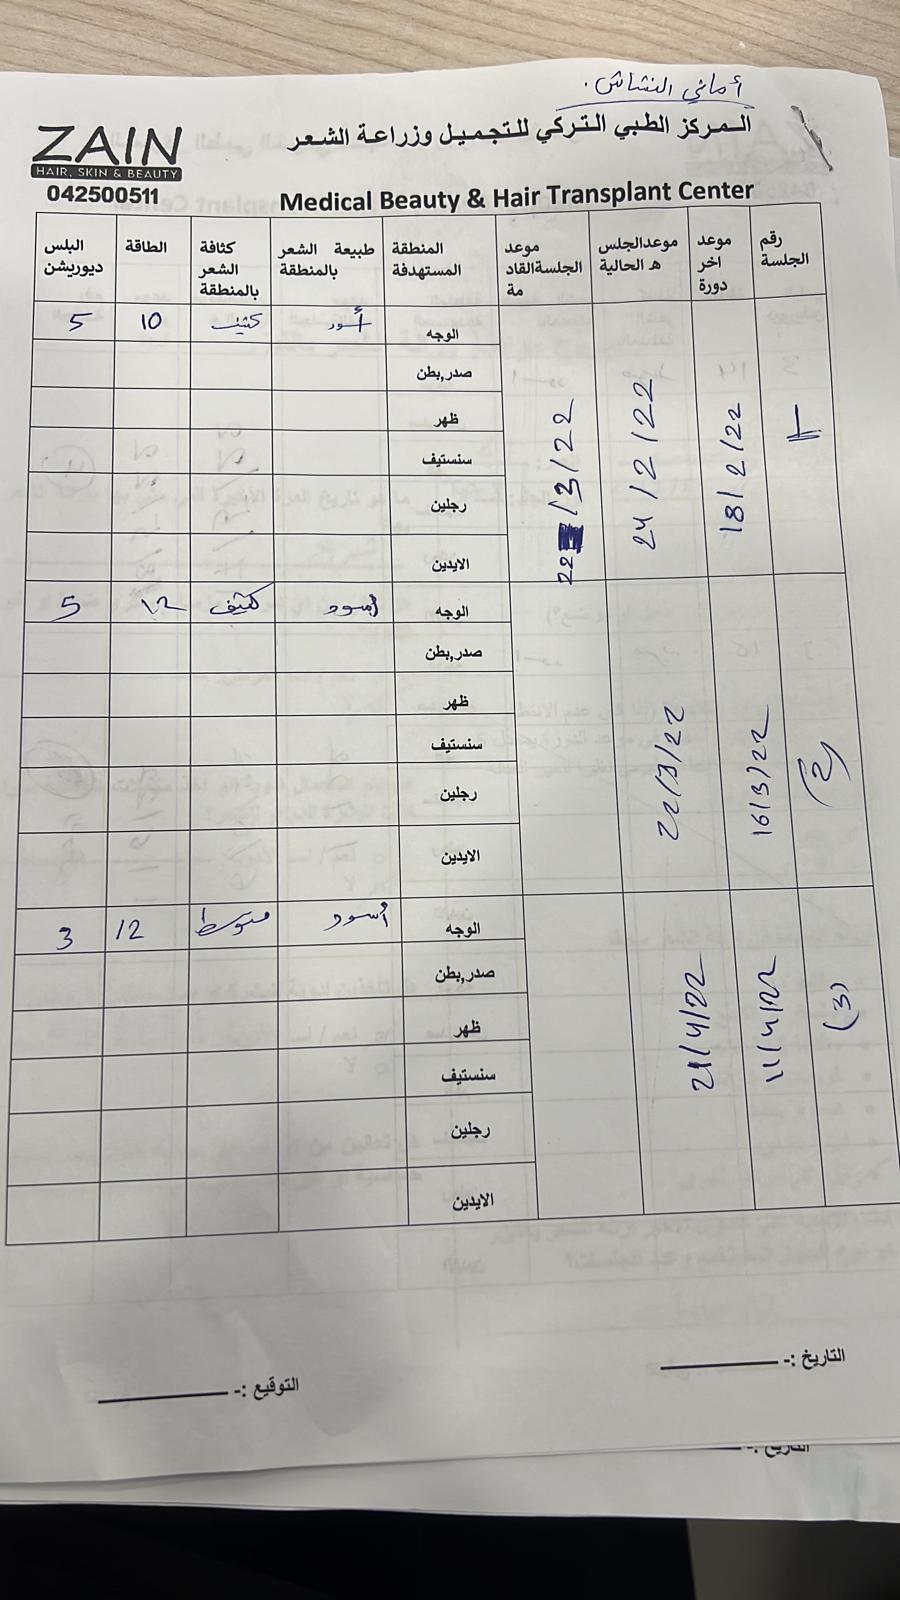 أماني النشاش.
ZAIN
HAIR, SKIN & BEAUTY
042500511
المركز الطبي التركي للتجميل وزراعة الشعر
Medical Beauty & Hair Transplant Center
رقم الجلسة
موعد اخر دورة
موعدالجلس ه الحالية
موعد الجلسةالقاد مة
المنطقة المستهدفة
طبيعة الشعر بالمنطقة
كثافة الشعر بالمنطقة
الطاقة
البلس ديوريشن
1
18/2/22
24/2/22
22/3/22
الوجه أسود كثيف 10 5
صدر,بطن
ظهر
سنستيف
رجلين
الايدين
(2)
16/3/22
22/3/22
الوجه أسود كثيف 12 5
صدر,بطن
ظهر
سنستيف
رجلين
الايدين
(3)
11/4/22
21/4/22
الوجه أسود متوسط 12 3
صدر,بطن
ظهر
سنستيف
رجلين
الايدين
التاريخ :-
التوقيع :-
التاريخ :-